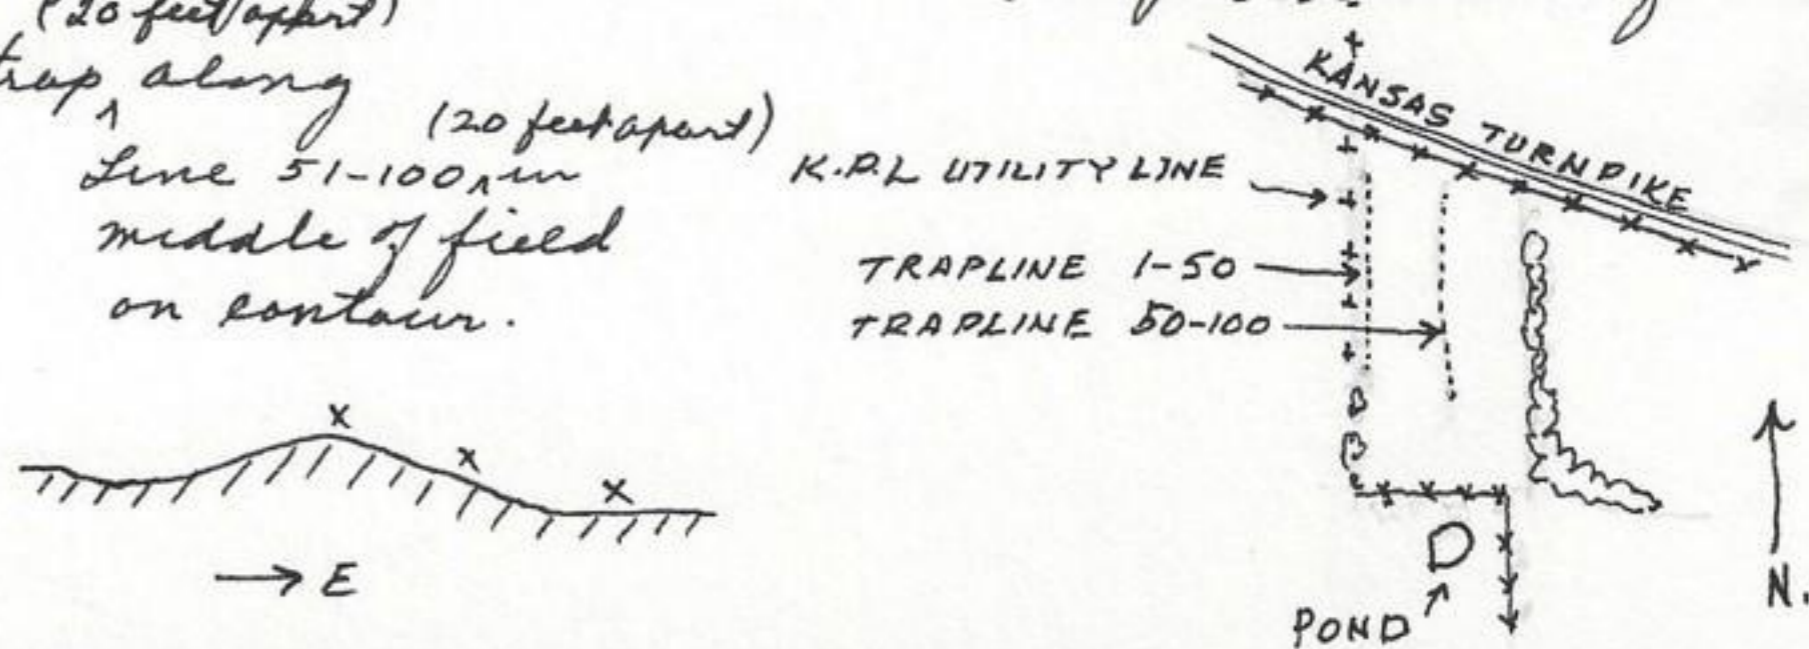 (20 feet apart)
trap ^ along
(20 feet apart)
Line 51-100 ^ in
middle of field
on contour.
→ E
KANSAS TURNPIKE
K.P.L UTILITY LINE
TRAPLINE 1-50
TRAPLINE 50-100
POND
N.